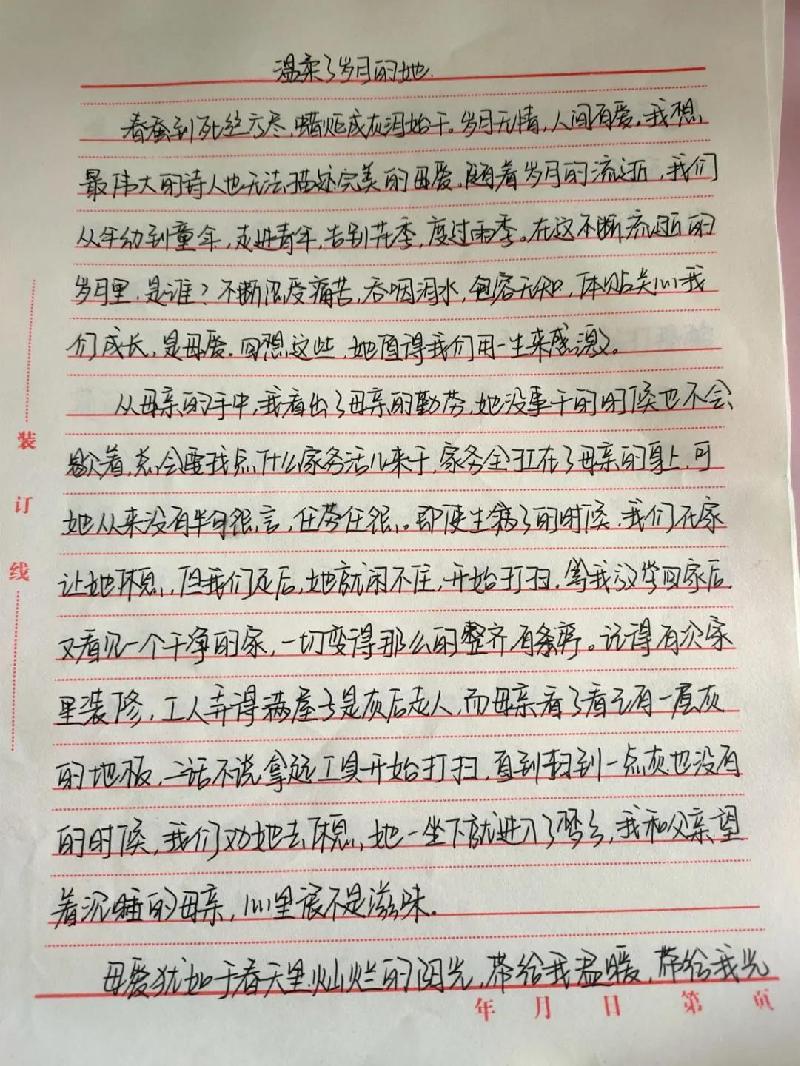 温柔了岁月的她
春蚕到死丝方尽,蜡炬成灰泪始干。岁月无情,人间有爱。我想,
最伟大的诗人也无法描述完美的母爱。随着岁月的流逝,我们
从年幼到童年,走进青年,告别花季,度过雨季。在这不断流逝的
岁月里,是谁?不断忍受痛苦,吞咽泪水,包容无知,体贴关心我
们成长,是母爱。回想这些,她值得我们用一生来感激。
从母亲的手中,我看出了母亲的勤劳,她没事干的时候也不会
歇着,总会要找点什么家务活儿来干,家务全扛在了母亲的身上,可
她从来没有半句狠言,任劳任狠。即使生病了的时候,我们在家
让她休息,但我们走后,她就闲不住,开始打扫,等我放学回家后
又看见一个干净的家,一切变得那么的整齐有条序。记得有次家
里装修,工人弄得满屋子是灰后走人,而母亲看了看已有一层灰
的地板,二话不说拿起工具开始打扫,直到扫到一点灰也没有
的时候,我们劝她去休息,她一坐下就进入了梦乡,我和父亲望
着沉睡的母亲,心里很不是滋味。
母爱犹如于春天里灿烂的阳光,带给我温暖,带给我光
装
订
线
年 月 日 第 页